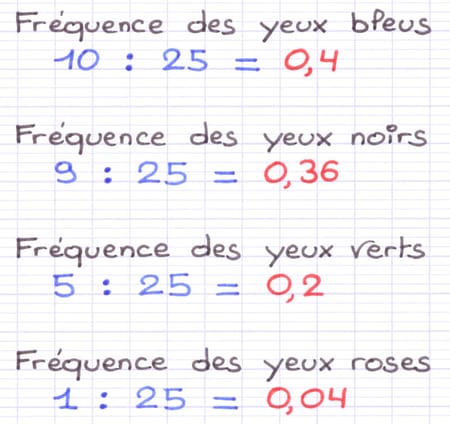 Fréquence des yeux bleus
10 : 25 = 0,4
Fréquence des yeux noirs
9 : 25 = 0,36
Fréquence des yeux verts
5 : 25 = 0,2
Fréquence des yeux roses
1 : 25 = 0,04